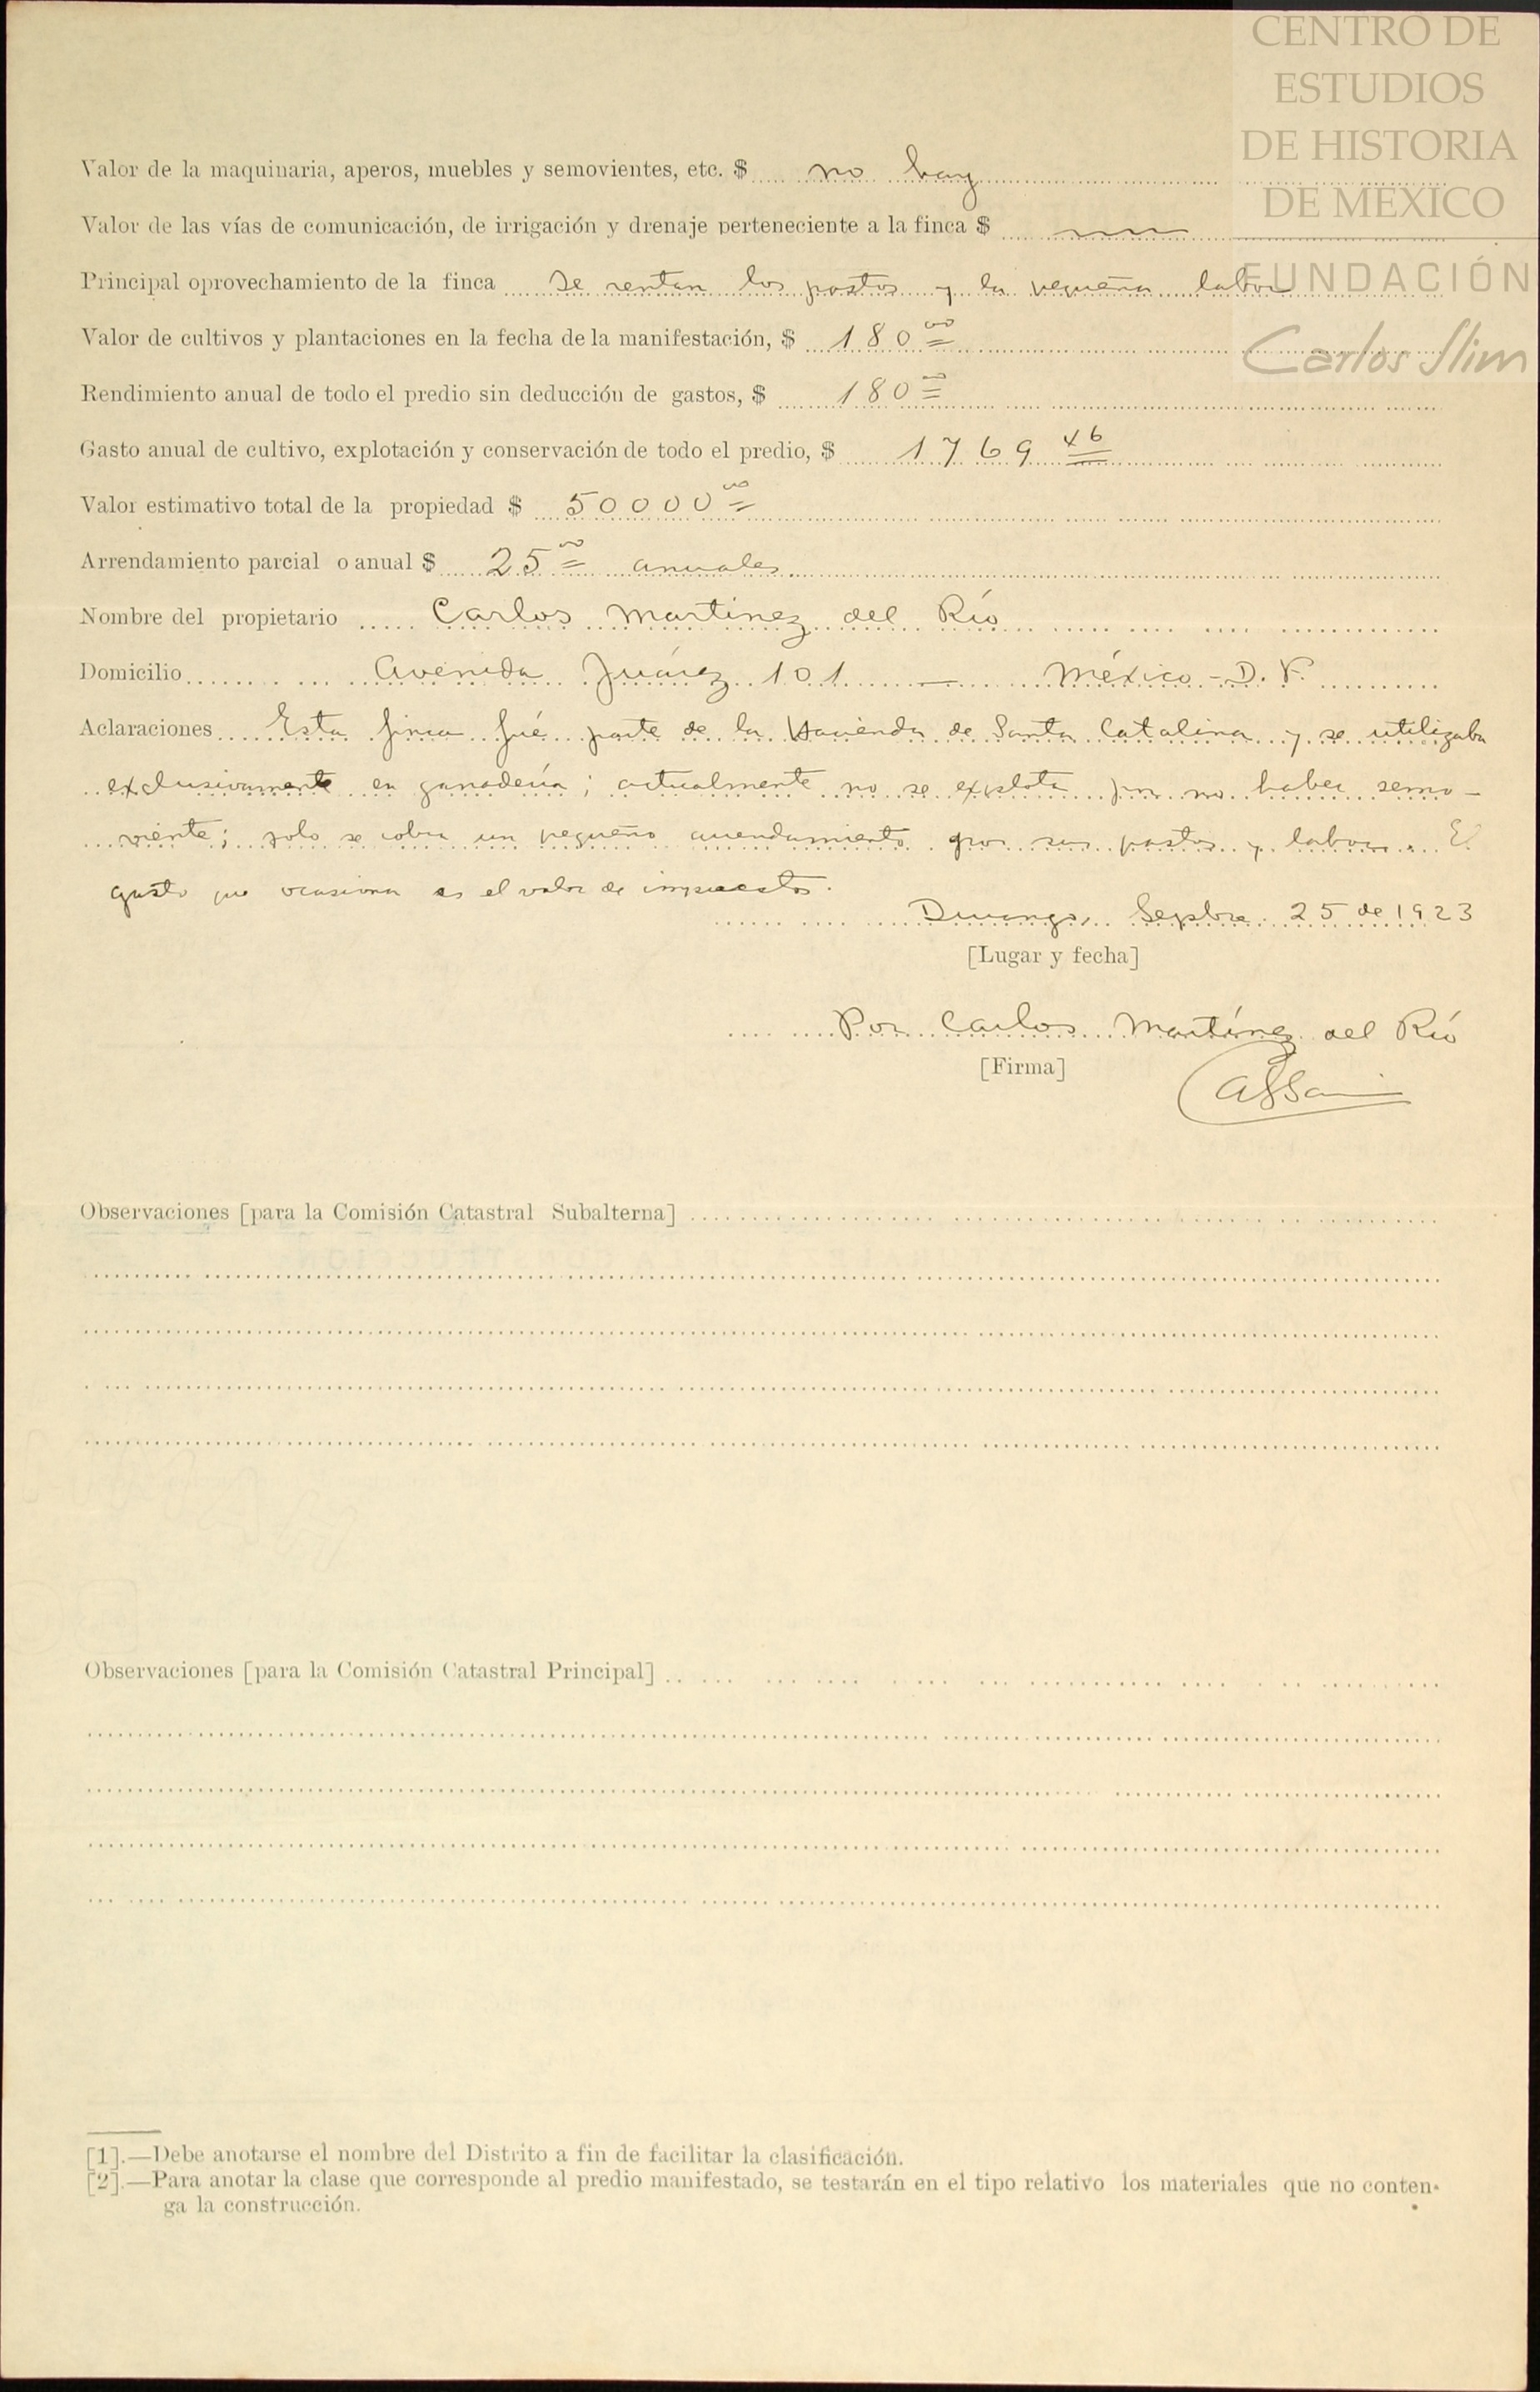 CENTRO DE
ESTUDIOS
DE HISTORIA
DE MÉXICO
FUNDACIÓN
Carlos Slim
Valor de la maquinaria, aperos, muebles y semovientes, etc. $ no hay
Valor de las vías de comunicación, de irrigación y drenaje perteneciente a la finca $
Principal oprovechamiento de la finca Se rentan los pastos y la pequeña labor
Valor de cultivos y plantaciones en la fecha de la manifestación, $ 180 00
Rendimiento anual de todo el predio sin deducción de gastos, $ 180 00
Gasto anual de cultivo, explotación y conservación de todo el predio, $ 1769 46
Valor estimativo total de la propiedad $ 50000 00
Arrendamiento parcial o anual $ 25 00 anuales
Nombre del propietario Carlos Martinez del Río
Domicilio Avenida Juárez 101 — México - D. F.
Aclaraciones Esta finca fué parte de la Hacienda de Santa Catalina y se utilizaba
exclusivamente en ganadería; actualmente no se explota por no haber semo-
viente; solo se cobra un pequeño arrendamiento por sus pastos y labor. El
gasto que ocasiona es el valor de impuestos.
Durango, Sepbre. 25 de 1923
[Lugar y fecha]
Por Carlos Martínez del Río
[Firma]
Observaciones [para la Comisión Catastral Subalterna]
Observaciones [para la Comisión Catastral Principal]
[1].—Debe anotarse el nombre del Distrito a fin de facilitar la clasificación.
[2].—Para anotar la clase que corresponde al predio manifestado, se testarán en el tipo relativo los materiales que no conten-
ga la construcción.